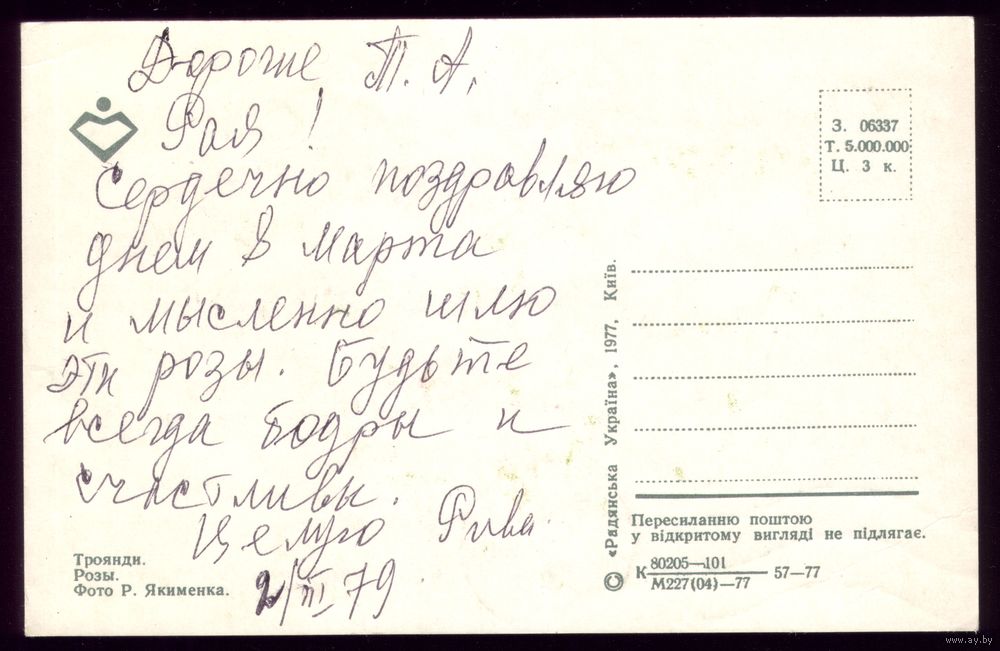 Дорогие Т. А,
Рая!
Сердечно поздравляю
днем 8 марта
и мысленно шлю
эти розы. Будьте
всегда бодры и
счастливы.
Целую Рива.
2/III 79
Троянди.
Розы.
Фото Р. Якименка.
З. 06337
Т. 5.000.000
Ц. 3 к.
© «Радянська Україна», 1977, Київ.
Пересиланню поштою
у відкритому вигляді не підлягає.
К 80205—101
М227(04)—77 57—77
www.ay.by